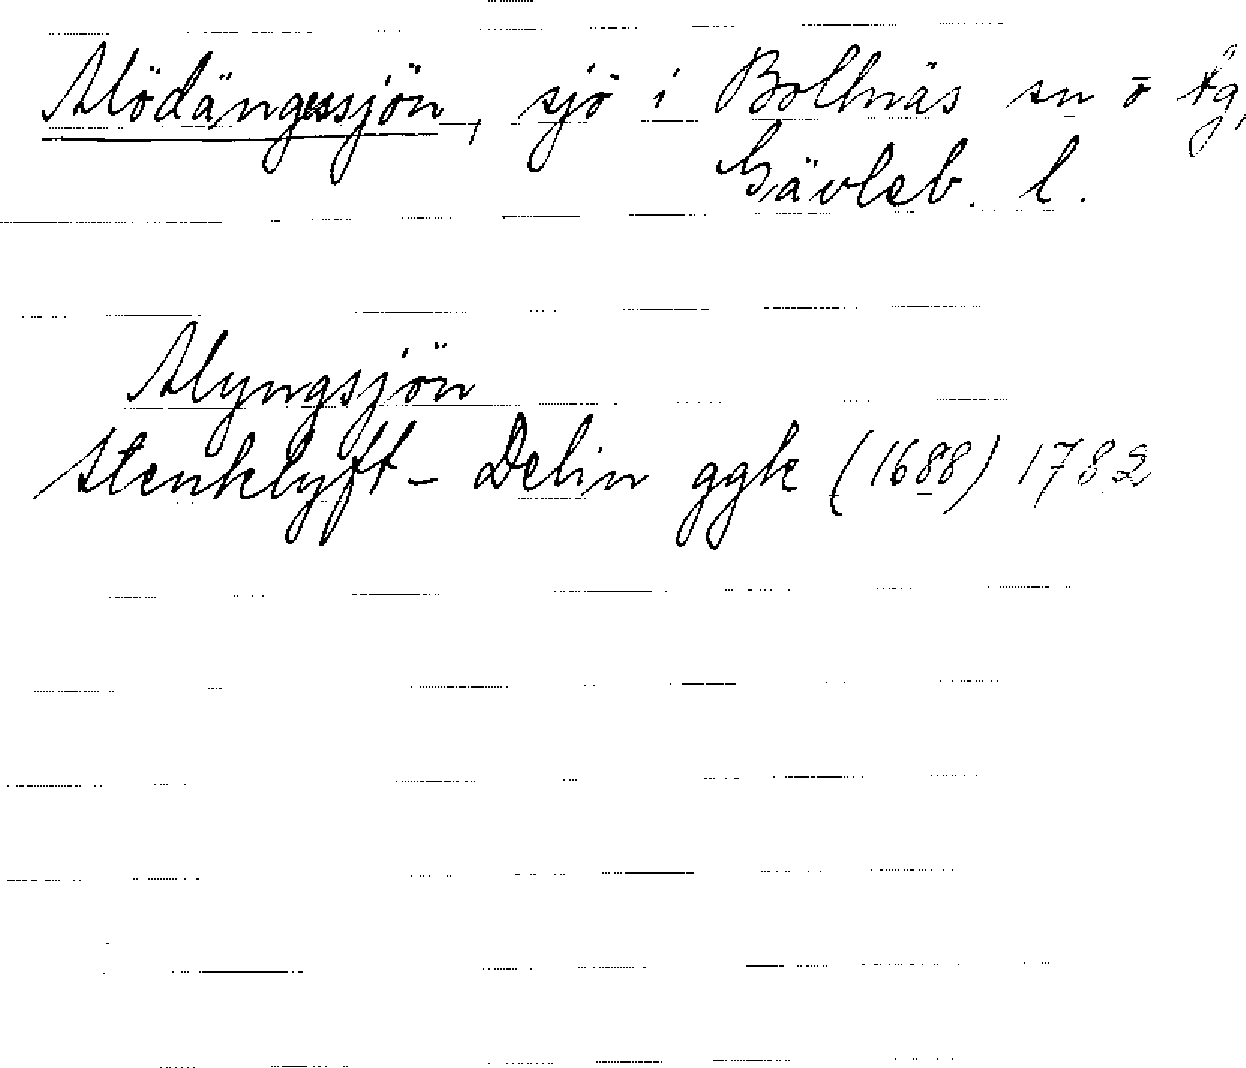 Alödängessjön, sjö i Bollnäs sn ō tg,
Gävleb. l.
Alyngsjön
Stenklyft- Delin ggk (1688) 1782